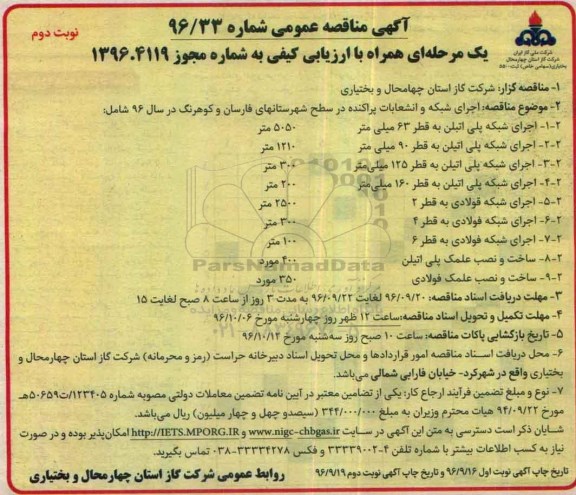 آگهی مناقصه عمومی شماره ۹۶/۳۳
نوبت دوم
یک مرحله‌ای همراه با ارزیابی کیفی به شماره مجوز ۱۳۹۶.۴۱۱۹
شرکت ملی گاز ایران
شرکت گاز استان چهارمحال
بختیاری(سهامی خاص)
۱- مناقصه گزار: شرکت گاز استان چهارمحال و بختیاری
۲- موضوع مناقصه: اجرای شبکه و انشعابات پراکنده در سطح شهرستانهای فارسان و کوهرنگ در سال ۹۶ شامل:
۱-۲- اجرای شبکه پلی اتیلن به قطر ۶۳ میلی متر ۵۰۵۰ متر
۲-۲- اجرای شبکه پلی اتیلن به قطر ۹۰ میلی متر ۱۲۱۰ متر
۳-۲- اجرای شبکه پلی اتیلن به قطر ۱۲۵ میلی‌متر ۳۰۰ متر
۴-۲- اجرای شبکه پلی اتیلن به قطر ۱۶۰ میلی‌متر ۲۰۰ متر
۵-۲- اجرای شبکه فولادی به قطر ۲ ۲۵۰۰ متر
۶-۲- اجرای شبکه فولادی به قطر ۴ ۳۰۰ متر
۷-۲- اجرای شبکه فولادی به قطر ۶ ۱۰۰ متر
۸-۲- ساخت و نصب علمک پلی اتیلن ۴۰۰ مورد
۹-۲- ساخت و نصب علمک فولادی ۳۵۰ مورد
ParsNamadData
۳- مهلت دریافت اسناد مناقصه: ۹۶/۰۹/۲۰ لغایت ۹۶/۰۹/۲۲ به مدت ۳ روز از ساعت ۸ صبح لغایت ۱۵
۴- مهلت تکمیل و تحویل اسناد مناقصه: ساعت ۱۲ ظهر روز چهارشنبه مورخ ۹۶/۱۰/۰۶
۵- تاریخ بازگشایی پاکات مناقصه: ساعت ۱۰ صبح روز سه‌شنبه مورخ ۹۶/۱۰/۱۲
۶- محل دریافت اسناد مناقصه امور قراردادها و محل تحویل اسناد دبیرخانه حراست (رمز و محرمانه) شرکت گاز استان چهارمحال و
بختیاری واقع در شهرکرد- خیابان فارابی شمالی می‌باشد.
۷- نوع و مبلغ تضمین فرآیند ارجاع کار: یکی از تضامین معتبر در آیین نامه تضمین معاملات دولتی مصوبه شماره ۱۲۳۴۰۲/ت۵۰۶۵۹هـ
مورخ ۹۴/۰۹/۲۲ هیات محترم وزیران به مبلغ ۳۴۴/۰۰۰/۰۰۰ (سیصدو چهل و چهار میلیون) ریال می‌باشد.
شایان ذکر است دسترسی به متن این آگهی در سایت www.nigc-chbgas.ir و http://IETS.MPORG.IR امکان‌پذیر بوده و در صورت
نیاز به کسب اطلاعات بیشتر با شماره تلفن ۴-۳۳۳۳۹۰۰۲ و فکس ۳۳۳۳۴۲۷۸-۰۳۸ تماس بگیرید.
تاریخ چاپ آگهی نوبت اول ۹۶/۹/۱۶ و تاریخ چاپ آگهی نوبت دوم ۹۶/۹/۱۹
روابط عمومی شرکت گاز استان چهارمحال و بختیاری